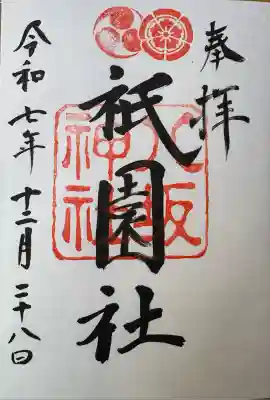 奉拝
祇園社
八坂
神社
令和七年十二月二十八日